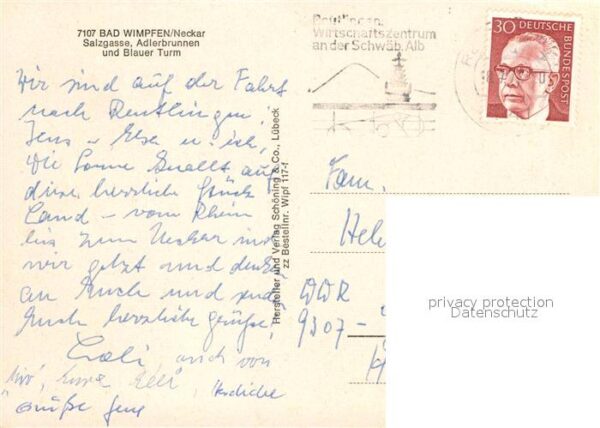 7107 BAD WIMPFEN/Neckar
Salzgasse, Adlerbrunnen
und Blauer Turm
Wir sind auf der Fahrt
nach Reutlingen,
Jens u Elsa u. ich,
Die Sonne knallt auf
diese herrlich
Land – vom Rhein
bis zum Neckar
wir jetzt und denken
an Euch und
Euch herzliche Grüße,
auch von
Herzliche
Grüße Jens
Hersteller und Verlag Schöning & Co., Lübeck
zz Bestellnr. Wipf 117-f
Reutlingen
Wirtschaftszentrum
an der Schwäb. Alb
30 DEUTSCHE
BUNDESPOST
Fam.
Hele
DDR
9307 -
privacy protection
Datenschutz